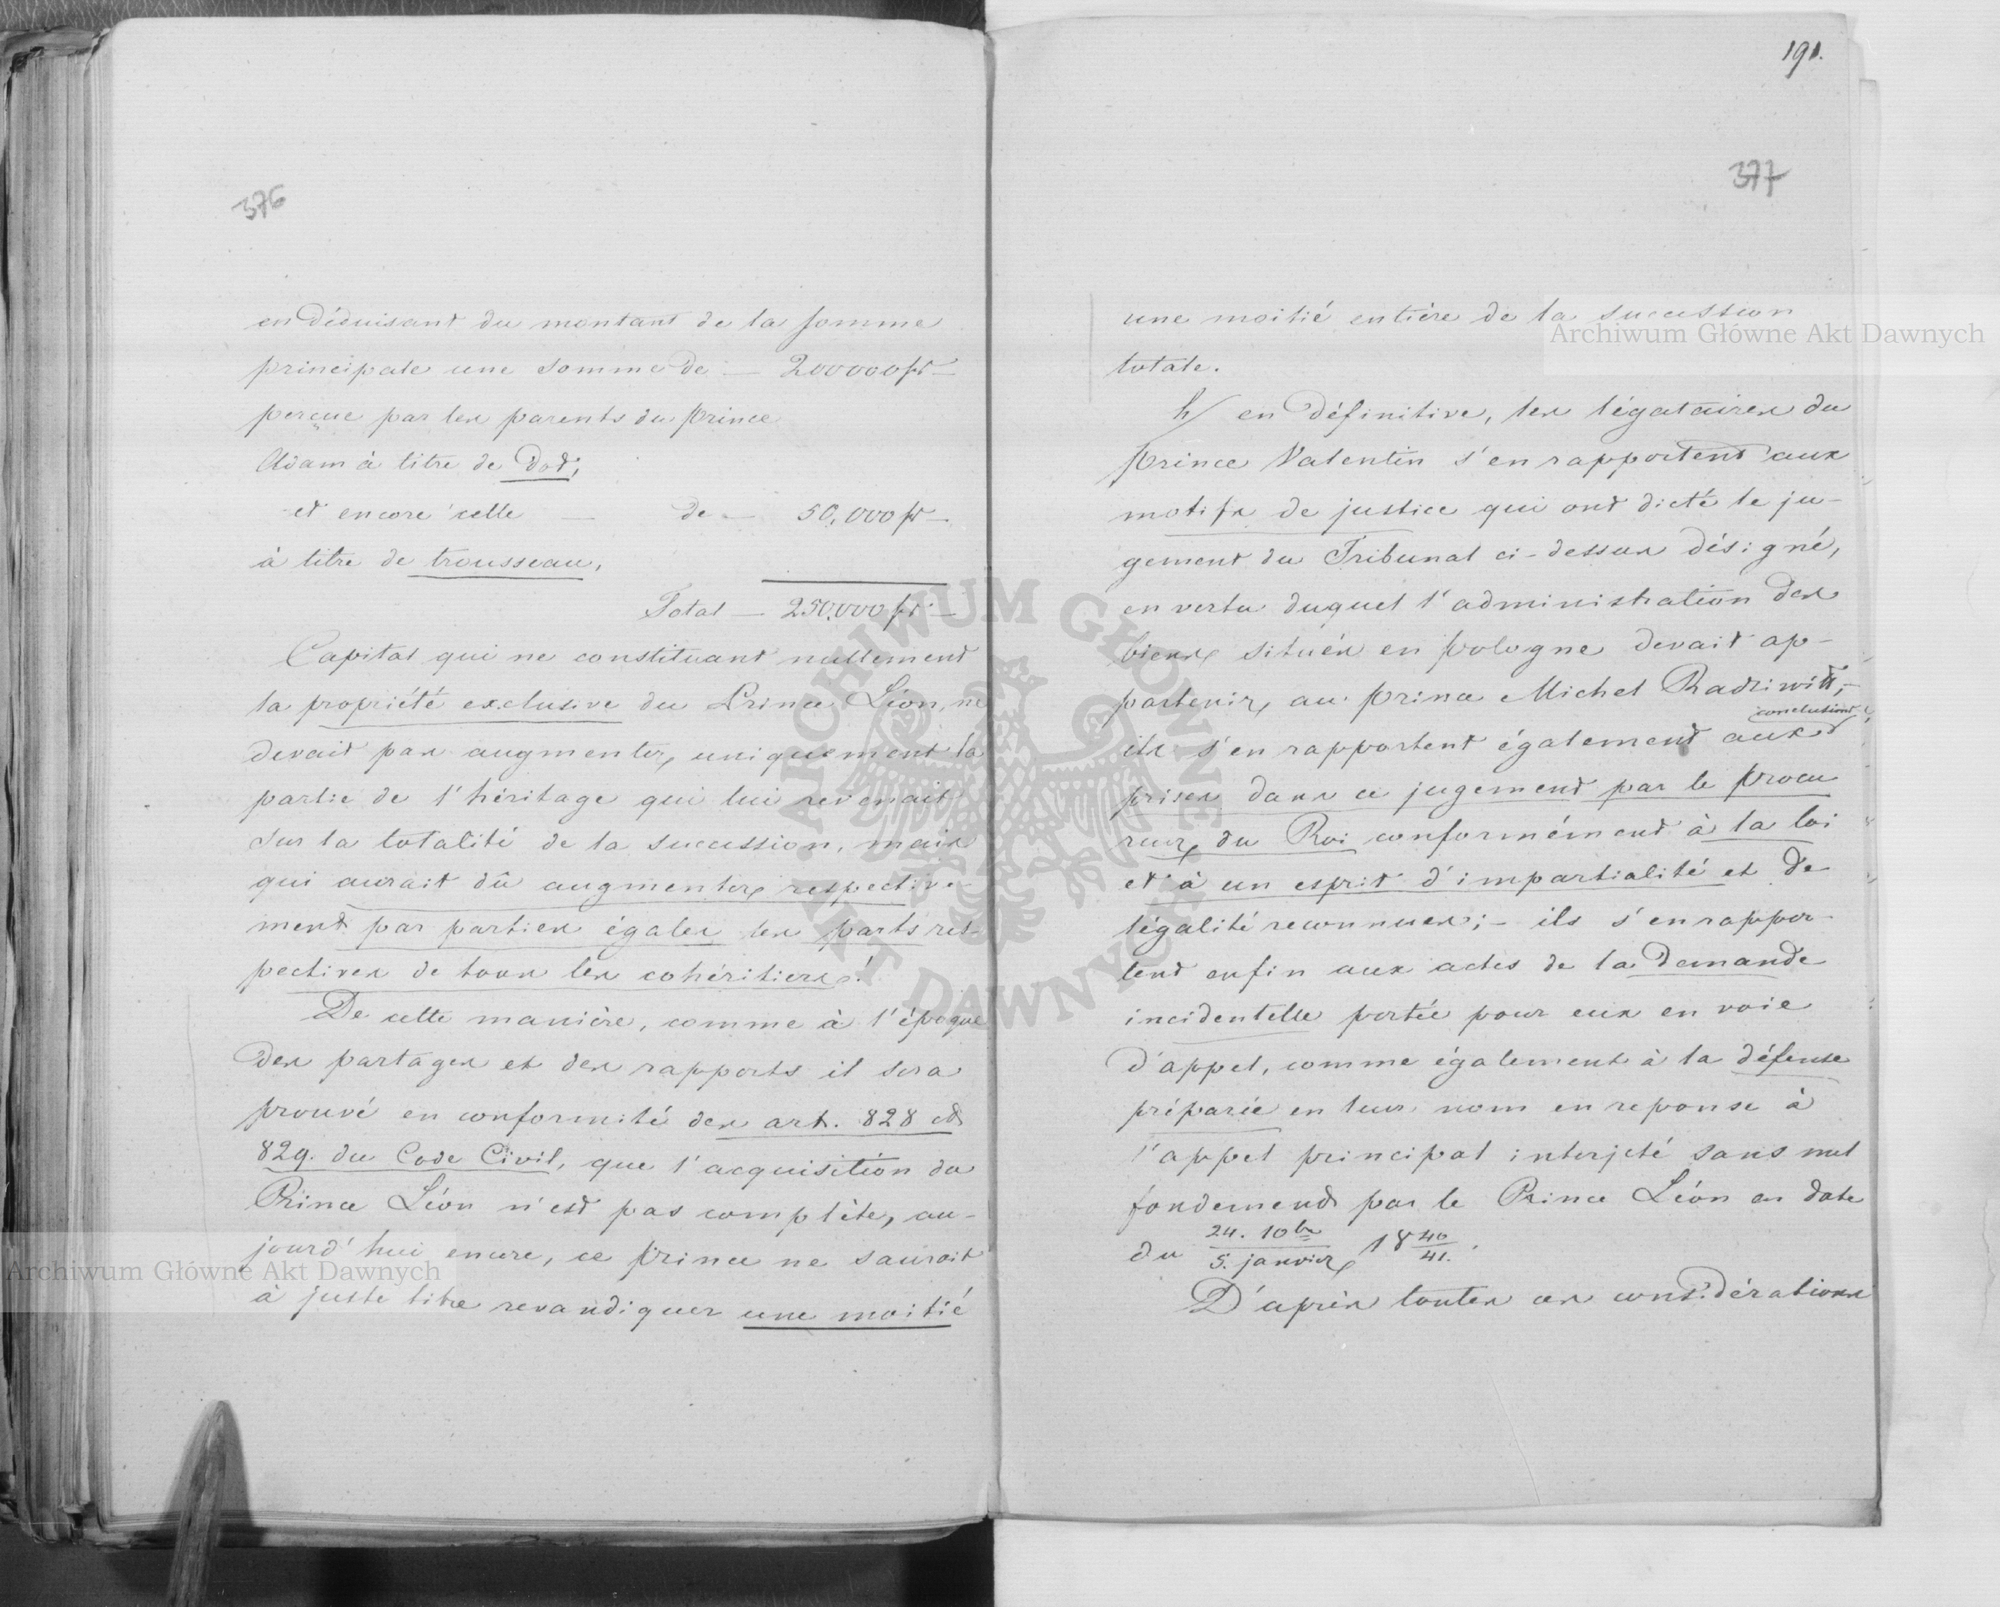 376
en déduisant du montant de la somme
principale une somme de — 200000 fl —
perçue par les parents du prince
Adam à titre de Dot;
et encore celle — de — 50,000 fl —
à titre de trousseau,
Total — 250,000 fl —
Capital qui ne constituant nullement
la propriété exclusive du Prince Léon, ne
devait pas augmenter, uniquement la
partie de l'héritage qui lui revenait
sur la totalité de la succession, mais
qui aurait dû augmenter respective-
ment par parties égales les parts res-
pectives de tous les cohéritiers!
De cette manière, comme à l'époque
des partages et des rapports il sera
prouvé en conformité des art. 828 et
829. du Code Civil, que l'acquisition du
Prince Léon n'est pas complète, au-
jourd'hui encore, ce prince ne sauroit
à juste titre revandiquer une moitié
191.
377
une moitié entière de la succession
totale.
h/ en définitive, les légataires du
prince Valentin s'en rapportent aux
motifs de justice qui ont dicté le ju-
gement du Tribunal ci-dessus désigné,
en vertu duquel l'administration des
biens, situés en pologne devait ap-
partenir, au prince Michel Radziwill,-
conclusions
ils s'en rapportent également aux
prises dans ce jugement par le procu
reur, du Roi conformément à la loi
et à un esprit d'impartialité et de
légalité reconnues; - ils s'en rappor-
tent enfin aux actes de la demande
incidentelle portée pour eux en voie
d'appel, comme également à la défense
préparée en leur nom en reponse à
l'appel principal interjeté sans nul
fondement par le Prince Léon en date
du 24. 10bre / 5. janvier 18 40/41.
D'après toutes ces considérations
Archiwum Główne Akt Dawnych
Archiwum Główne Akt Dawnych
ARCHIWUM GŁÓWNE AKT DAWNYCH